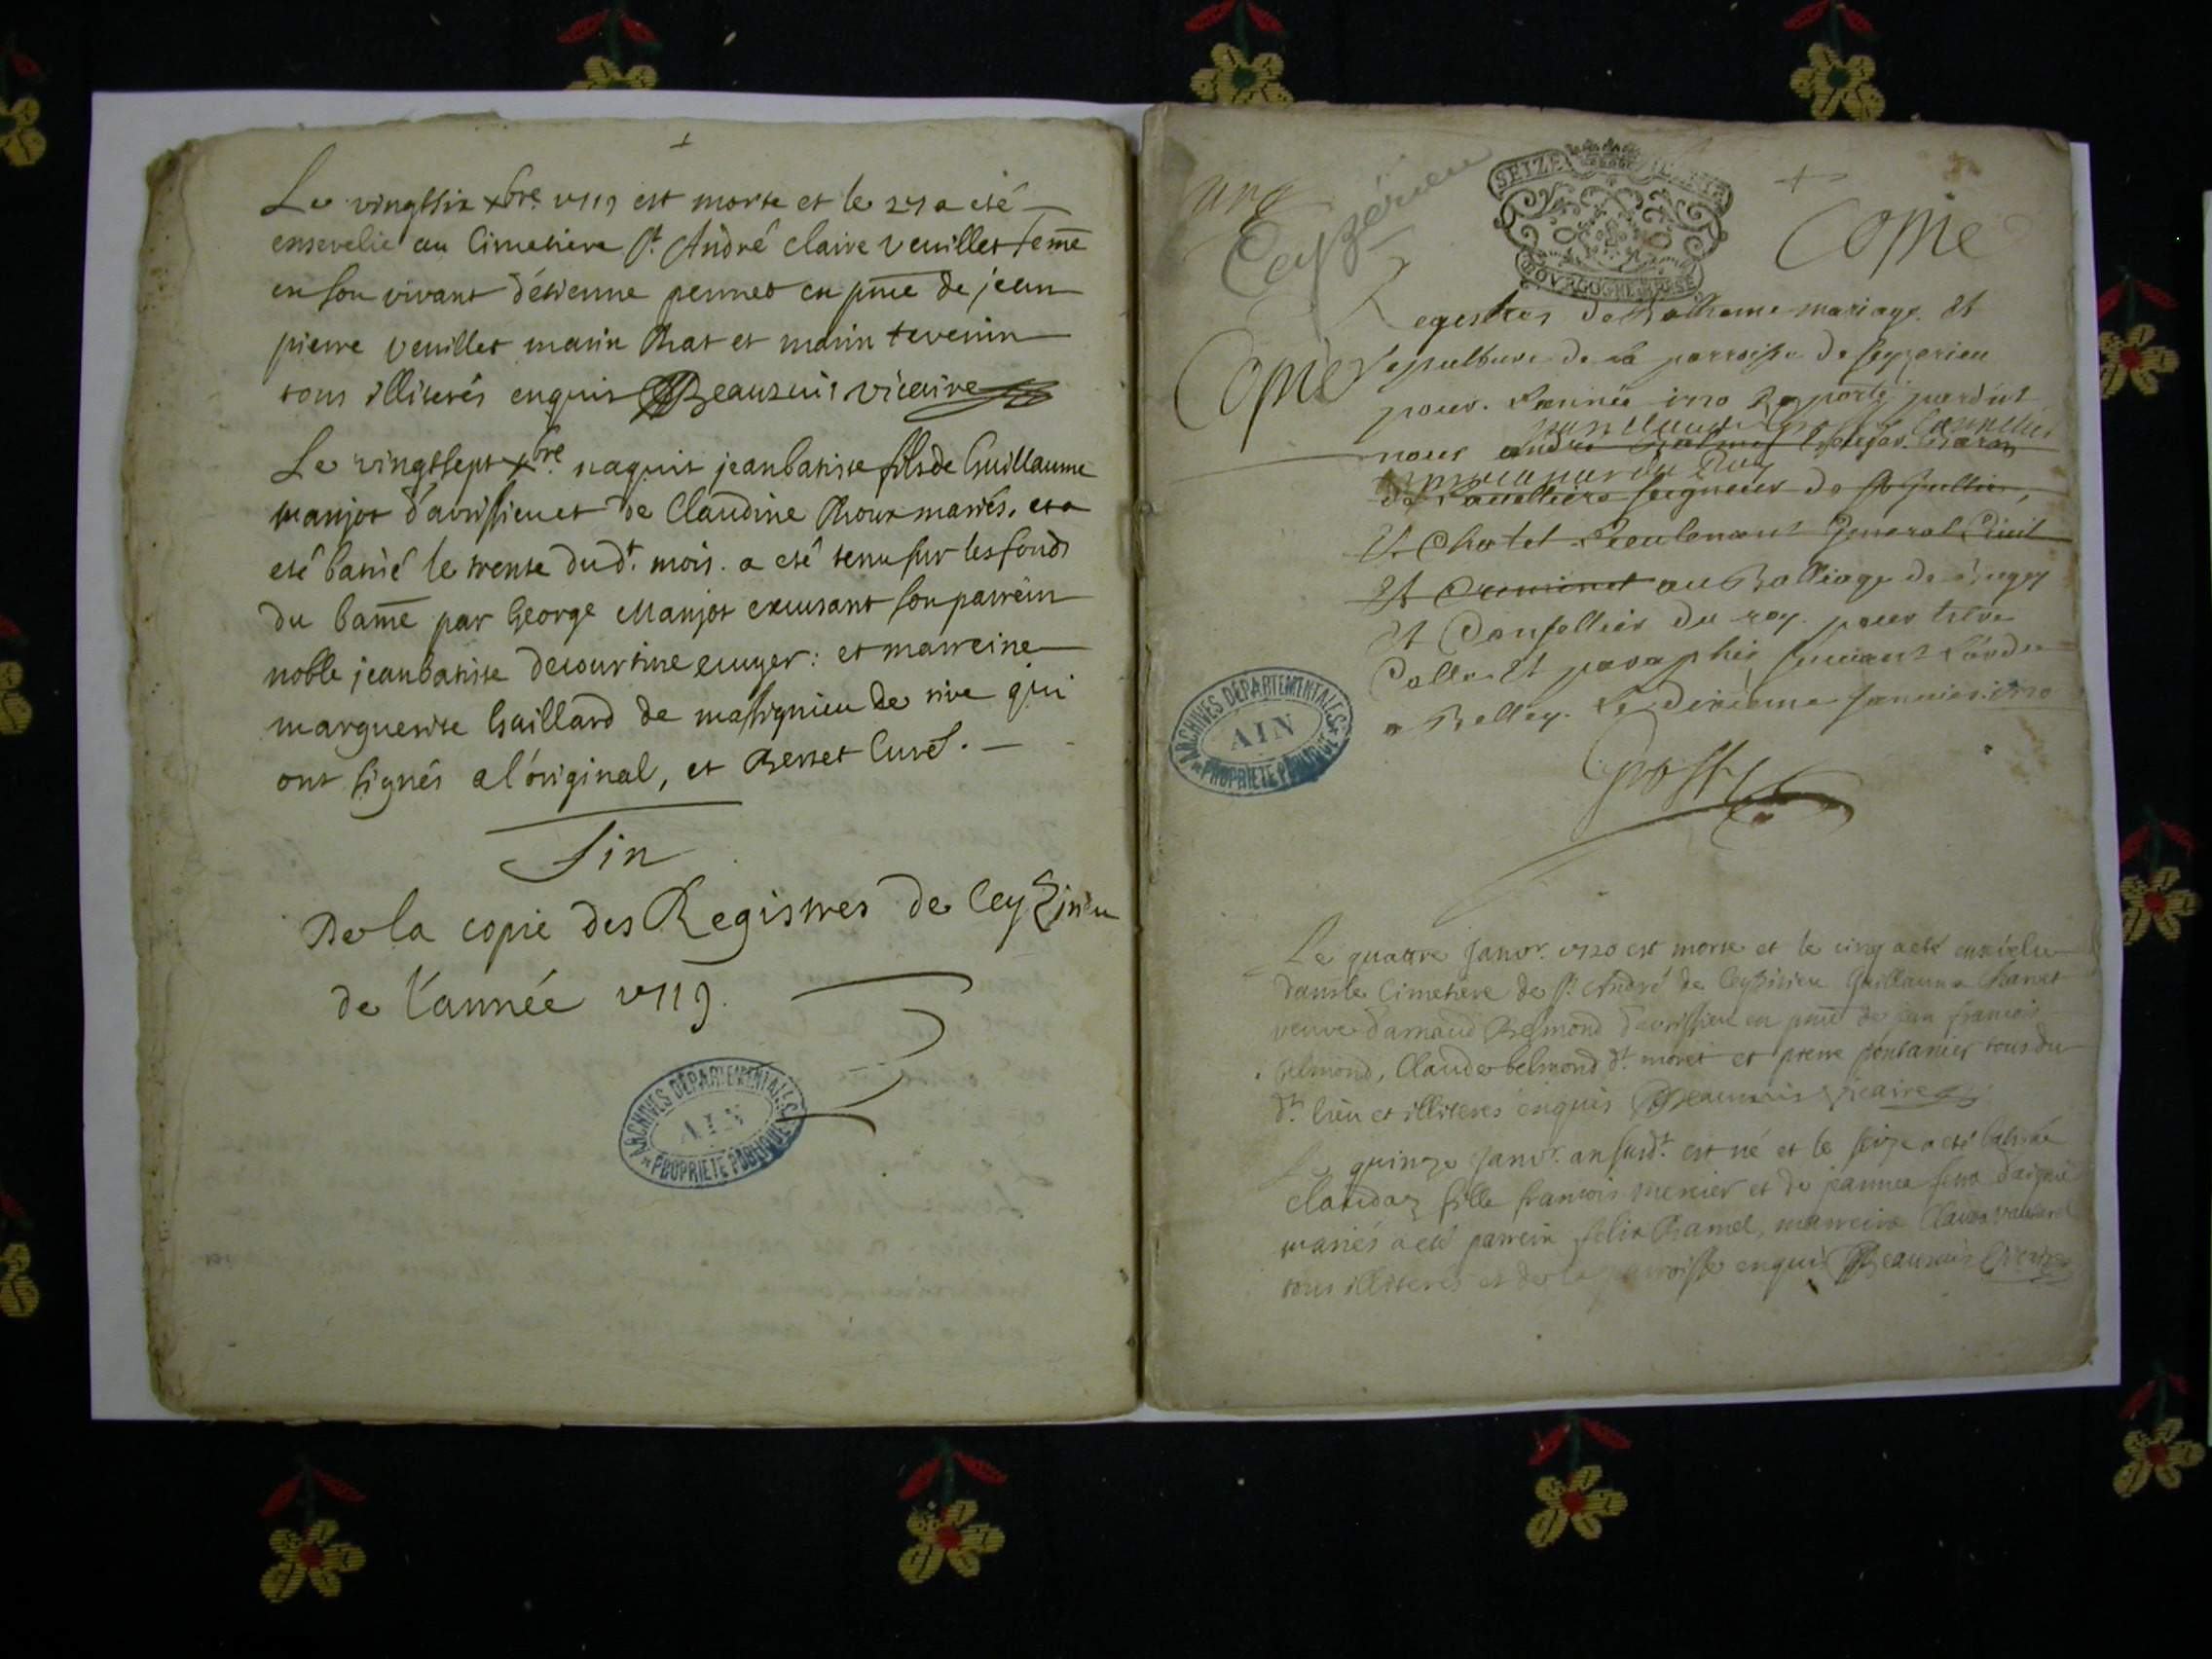 Le vingtsix xbre 1719 est morte et le 27 a eté
ensevelie au Cimetiere St. André claire Veuillet feme
en son vivant d'étienne pernet en pnce de jean
pierre Veuillet marin Rat et marin tevenin
tous illiterés enquis Beauzuis vicaire
Le vingtsept xbre naquit jeanbatiste fils de Guillaume
manjot d'avrissieu et de Claudine Roux mariés. et a
eté batisé le trente dud. mois. a eté tenu sur les fonds
du batme par George Manjot excusant son parrein
noble jeanbatiste decourtine ecuyer: et marreine
marguerite Gaillard de massignieu de rive qui
ont signés a l'original, et Curé.
fin
De la copie des Registres de Ceyzirieu
de l'année 1719.
ARCHIVES DÉPARTEMENTALES
AIN
PROPRIÉTÉ PUBLIQUE
Ceyzérieu
SEIZE
BOURGOGNE BRESSE
Copie
Registres de Batheme mariage et
Copie
Sepulture de la parroisse de Seyzerieu
pour l'année 1720
nous
de seigneur de St Jullin,
Et Chatel Lieutenant General Civil
Et Criminel au Balliage de Bugey
Et Conseiller du roy. pour
Et paraphés suivant
a Belley. Le dixieme janvier 1720
ARCHIVES DÉPARTEMENTALES
AIN
PROPRIÉTÉ PUBLIQUE
Le quatre Janvr. 1720 est morte et le cinq a eté ensevelie
dans le Cimetiere de St. André de Guillauma Charvet
veuve d'arnaud Belmond d'avrissieu en pnce de jean francois
belmond, Claude belmond dt. moret et pierre tous du
dt. lieu et illiteres enquis Beauzuis Vicaire
Le quinze Janvr. an susdt. est né et le seize a eté batisée
claudaz fille francois mercier et de jeanne
mariés a eté parrein felix Ramel, marreine Claudaz
tous illiterés et de la parroisse enquis Beauzuis Vicaire